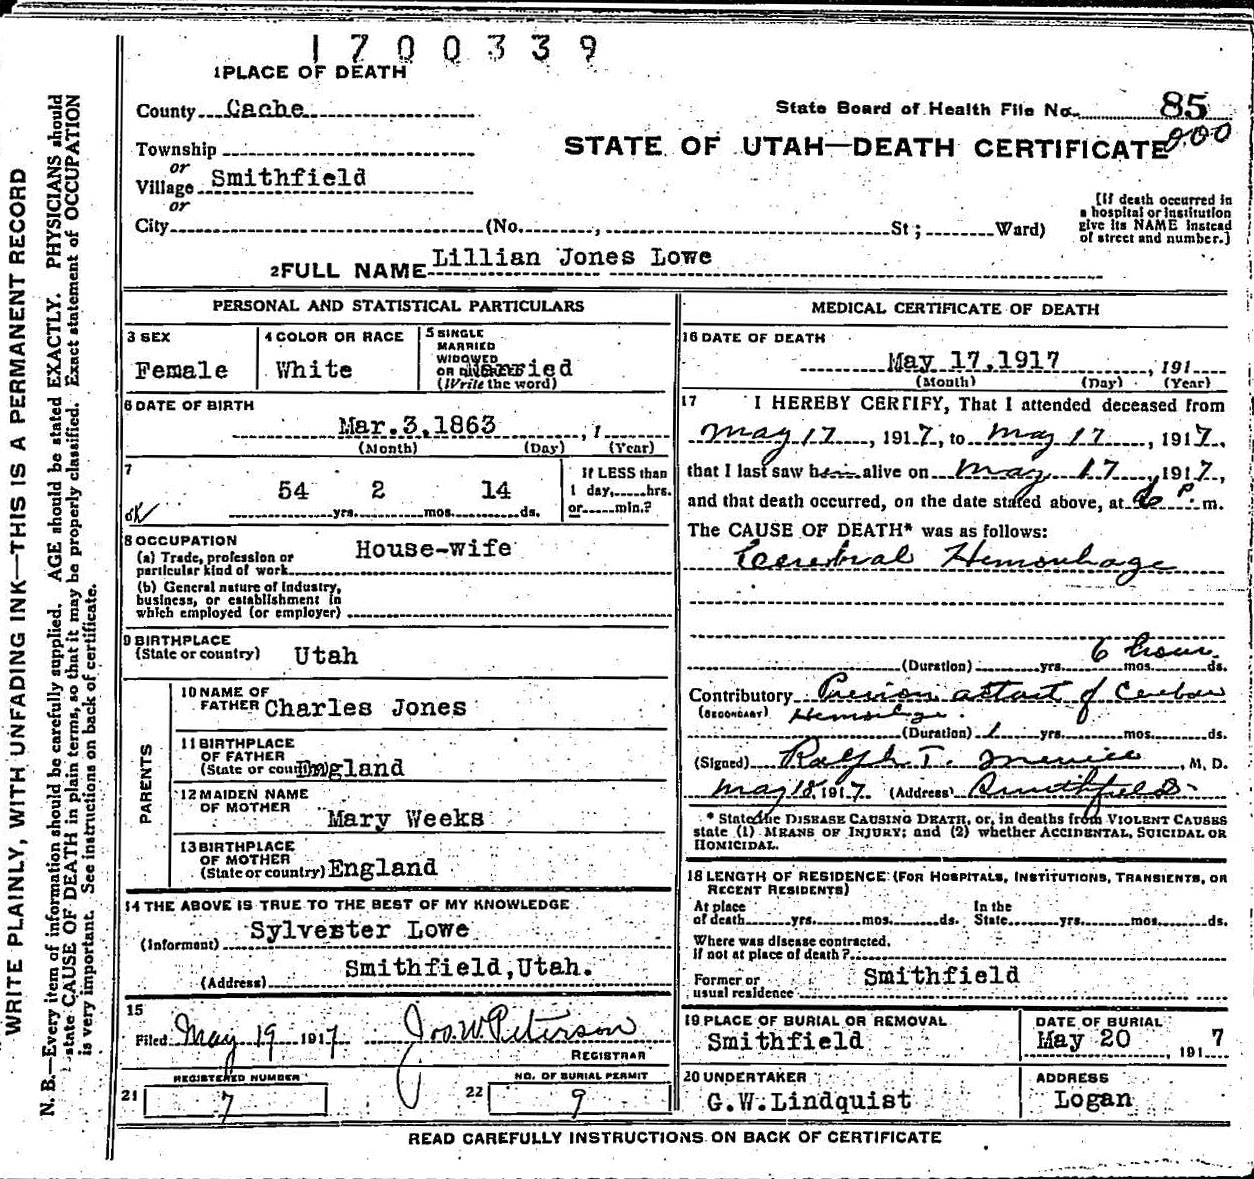 1700339
1 PLACE OF DEATH
County Cache
State Board of Health File No. 85
000
Township
or
Village Smithfield
or
STATE OF UTAH—DEATH CERTIFICATE
[If death occurred in
a hospital or institution
give its NAME instead
of street and number.]
City (No. , St ; Ward)
2 FULL NAME Lillian Jones Lowe
PERSONAL AND STATISTICAL PARTICULARS
3 SEX
Female
4 COLOR OR RACE
White
5 SINGLE
MARRIED
WIDOWED
OR DIVORCED
Married
(Write the word)
6 DATE OF BIRTH
Mar.3,1863 , 1
(Month) (Day) (Year)
7
54 yrs. 2 mos. 14 ds.
If LESS than
1 day, hrs.
or min.?
OK
8 OCCUPATION
(a) Trade, profession or
particular kind of work House-wife
(b) General nature of industry,
business, or establishment in
which employed (or employer)
9 BIRTHPLACE
(State or country) Utah
PARENTS
10 NAME OF
FATHER Charles Jones
11 BIRTHPLACE
OF FATHER
(State or country) England
12 MAIDEN NAME
OF MOTHER Mary Weeks
13 BIRTHPLACE
OF MOTHER
(State or country) England
14 THE ABOVE IS TRUE TO THE BEST OF MY KNOWLEDGE
(Informant) Sylvester Lowe
(Address) Smithfield,Utah.
15
Filed May 19 1917 Jos. W. Peterson
REGISTRAR
REGISTERED NUMBER
21 7
NO. OF BURIAL PERMIT
22 9
MEDICAL CERTIFICATE OF DEATH
16 DATE OF DEATH
May 17,1917 , 191
(Month) (Day) (Year)
17 I HEREBY CERTIFY, That I attended deceased from
May 17 , 1917, to May 17 , 1917,
that I last saw h alive on May 17 , 1917,
and that death occurred, on the date stated above, at 6 P. m.
The CAUSE OF DEATH* was as follows:
Cerebral Hemorrhage
6 hours
(Duration) yrs. mos. ds.
Contributory Previous attact of Cerebral
(SECONDARY) Hemorrhage.
(Duration) 1 yrs. mos. ds.
(Signed) Ralph T. Merrill , M. D.
May 18, 1917 (Address) Smithfield
* State the DISEASE CAUSING DEATH, or, in deaths from VIOLENT CAUSES
state (1) MEANS OF INJURY; and (2) whether ACCIDENTAL, SUICIDAL OR
HOMICIDAL.
18 LENGTH OF RESIDENCE (FOR HOSPITALS, INSTITUTIONS, TRANSIENTS, OR
RECENT RESIDENTS)
At place
of death yrs. mos. ds.
In the
State yrs. mos. ds.
Where was disease contracted,
if not at place of death?
Former or
usual residence Smithfield
19 PLACE OF BURIAL OR REMOVAL
Smithfield
DATE OF BURIAL
May 20 , 1917
20 UNDERTAKER
G.W.Lindquist
ADDRESS
Logan
READ CAREFULLY INSTRUCTIONS ON BACK OF CERTIFICATE
WRITE PLAINLY, WITH UNFADING INK—THIS IS A PERMANENT RECORD
N. B.—Every item of information should be carefully supplied. AGE should be stated EXACTLY. PHYSICIANS should
state CAUSE OF DEATH in plain terms, so that it may be properly classified. Exact statement of OCCUPATION
is very important. See instructions on back of certificate.